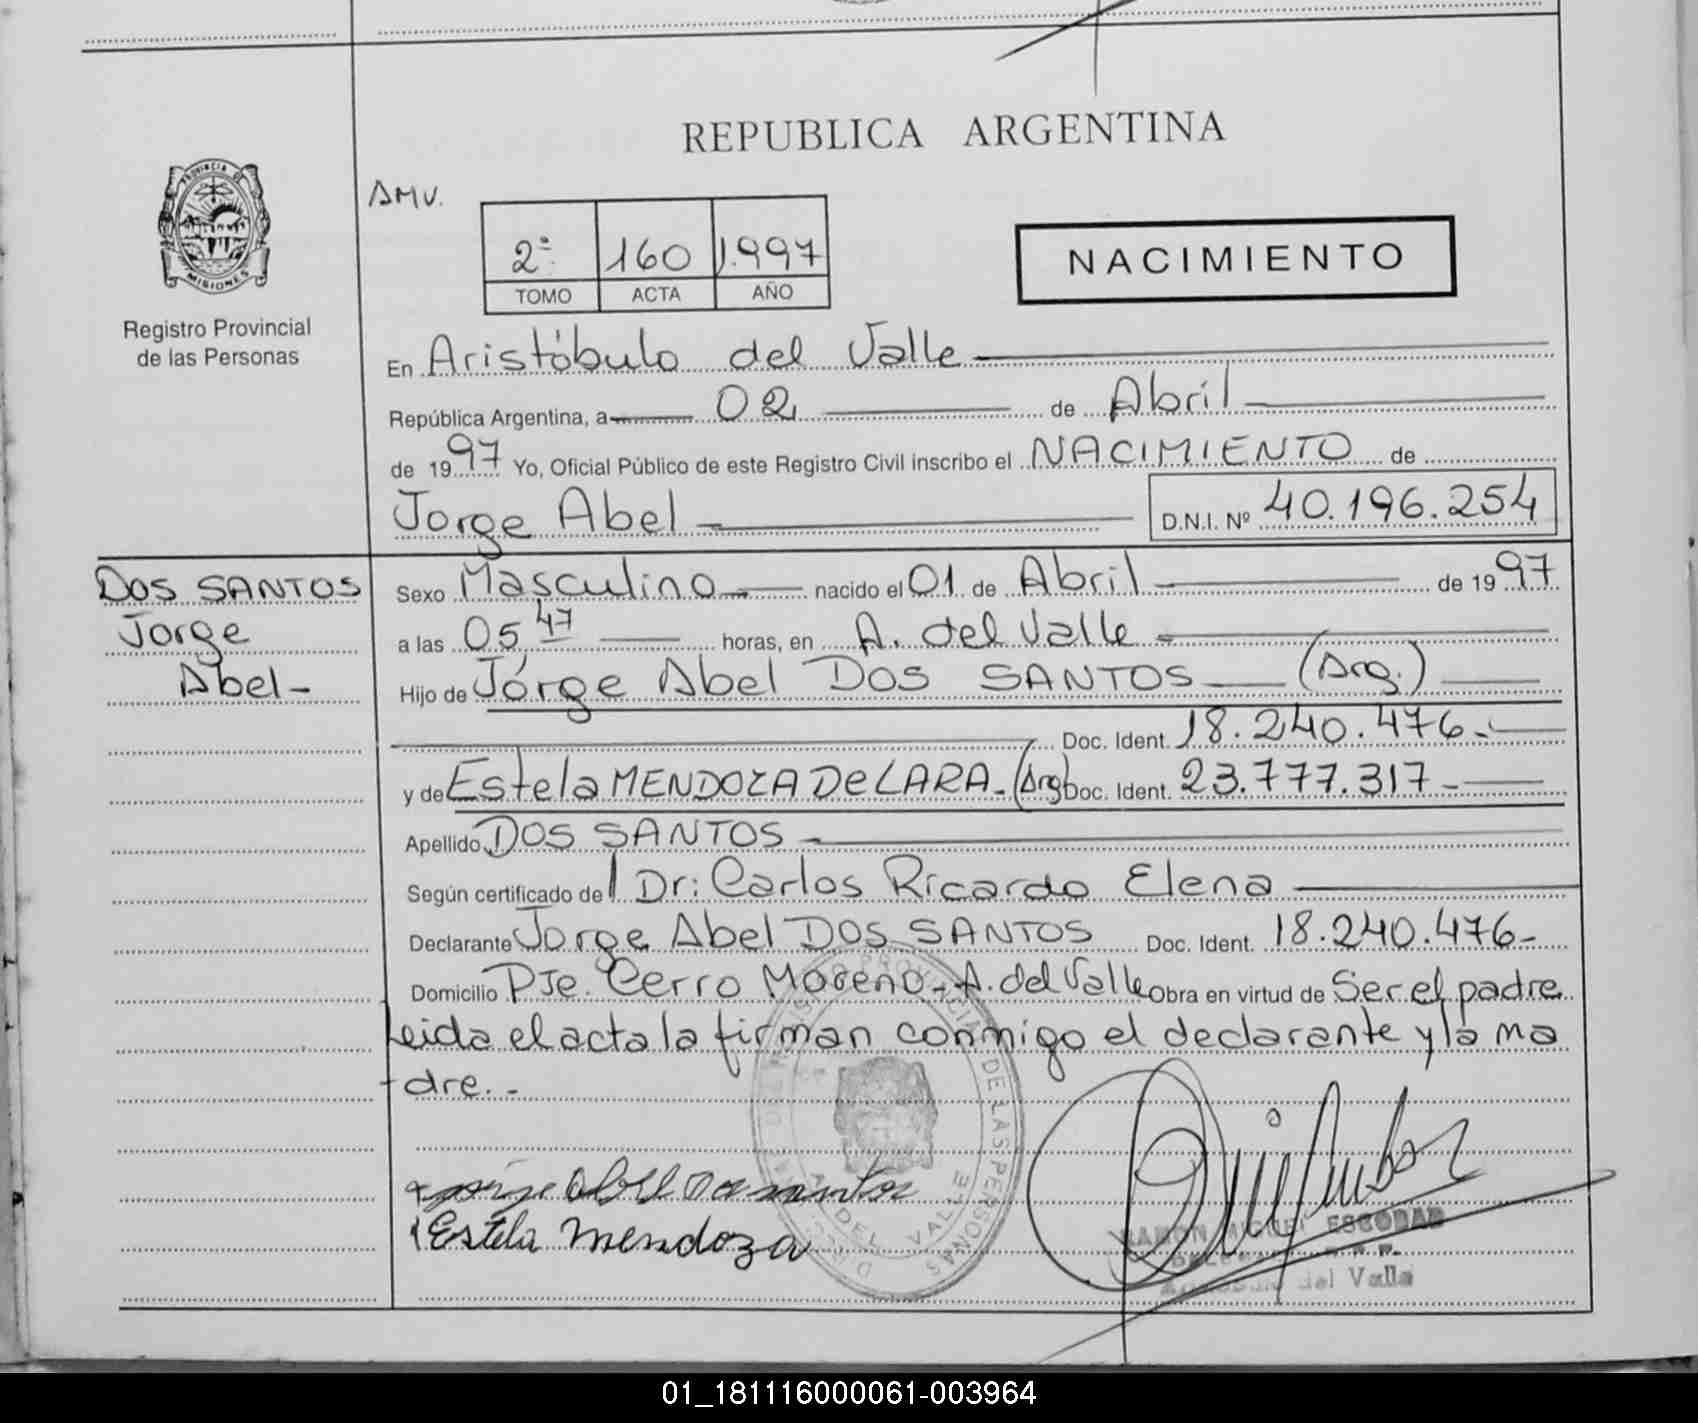 REPUBLICA ARGENTINA
PROVINCIA DE
MISIONES
Registro Provincial
de las Personas
AMV.
2ª 160 1.997
TOMO ACTA AÑO
NACIMIENTO
En Aristóbulo del Valle
República Argentina, a 02 de Abril
de 1997 Yo, Oficial Público de este Registro Civil inscribo el NACIMIENTO de
Jorge Abel D.N.I. Nº 40.196.254
DOS SANTOS
Jorge
Abel-
Sexo Masculino nacido el 01 de Abril de 1997
a las 05,47 horas, en A. del Valle
Hijo de Jorge Abel DOS SANTOS (Arg.)
Doc. Ident. 18.240.476.-
y de Estela MENDOZA DE LARA.(Arg) Doc. Ident. 23.777.317-
Apellido DOS SANTOS
Según certificado del Dr: Carlos Ricardo Elena
Declarante Jorge Abel DOS SANTOS Doc. Ident. 18.240.476-
Domicilio Pje. Cerro Moreno-A. del Valle Obra en virtud de Ser el padre
Leida el acta la firman conmigo el declarante y la ma
dre.-
jorge abel Dos santos
Estela mendoza
REGISTRO PROVINCIAL DE LAS PERSONAS
A. DEL VALLE
RAMON MIGUEL ESCOBAR
del Valle
01_181116000061-003964